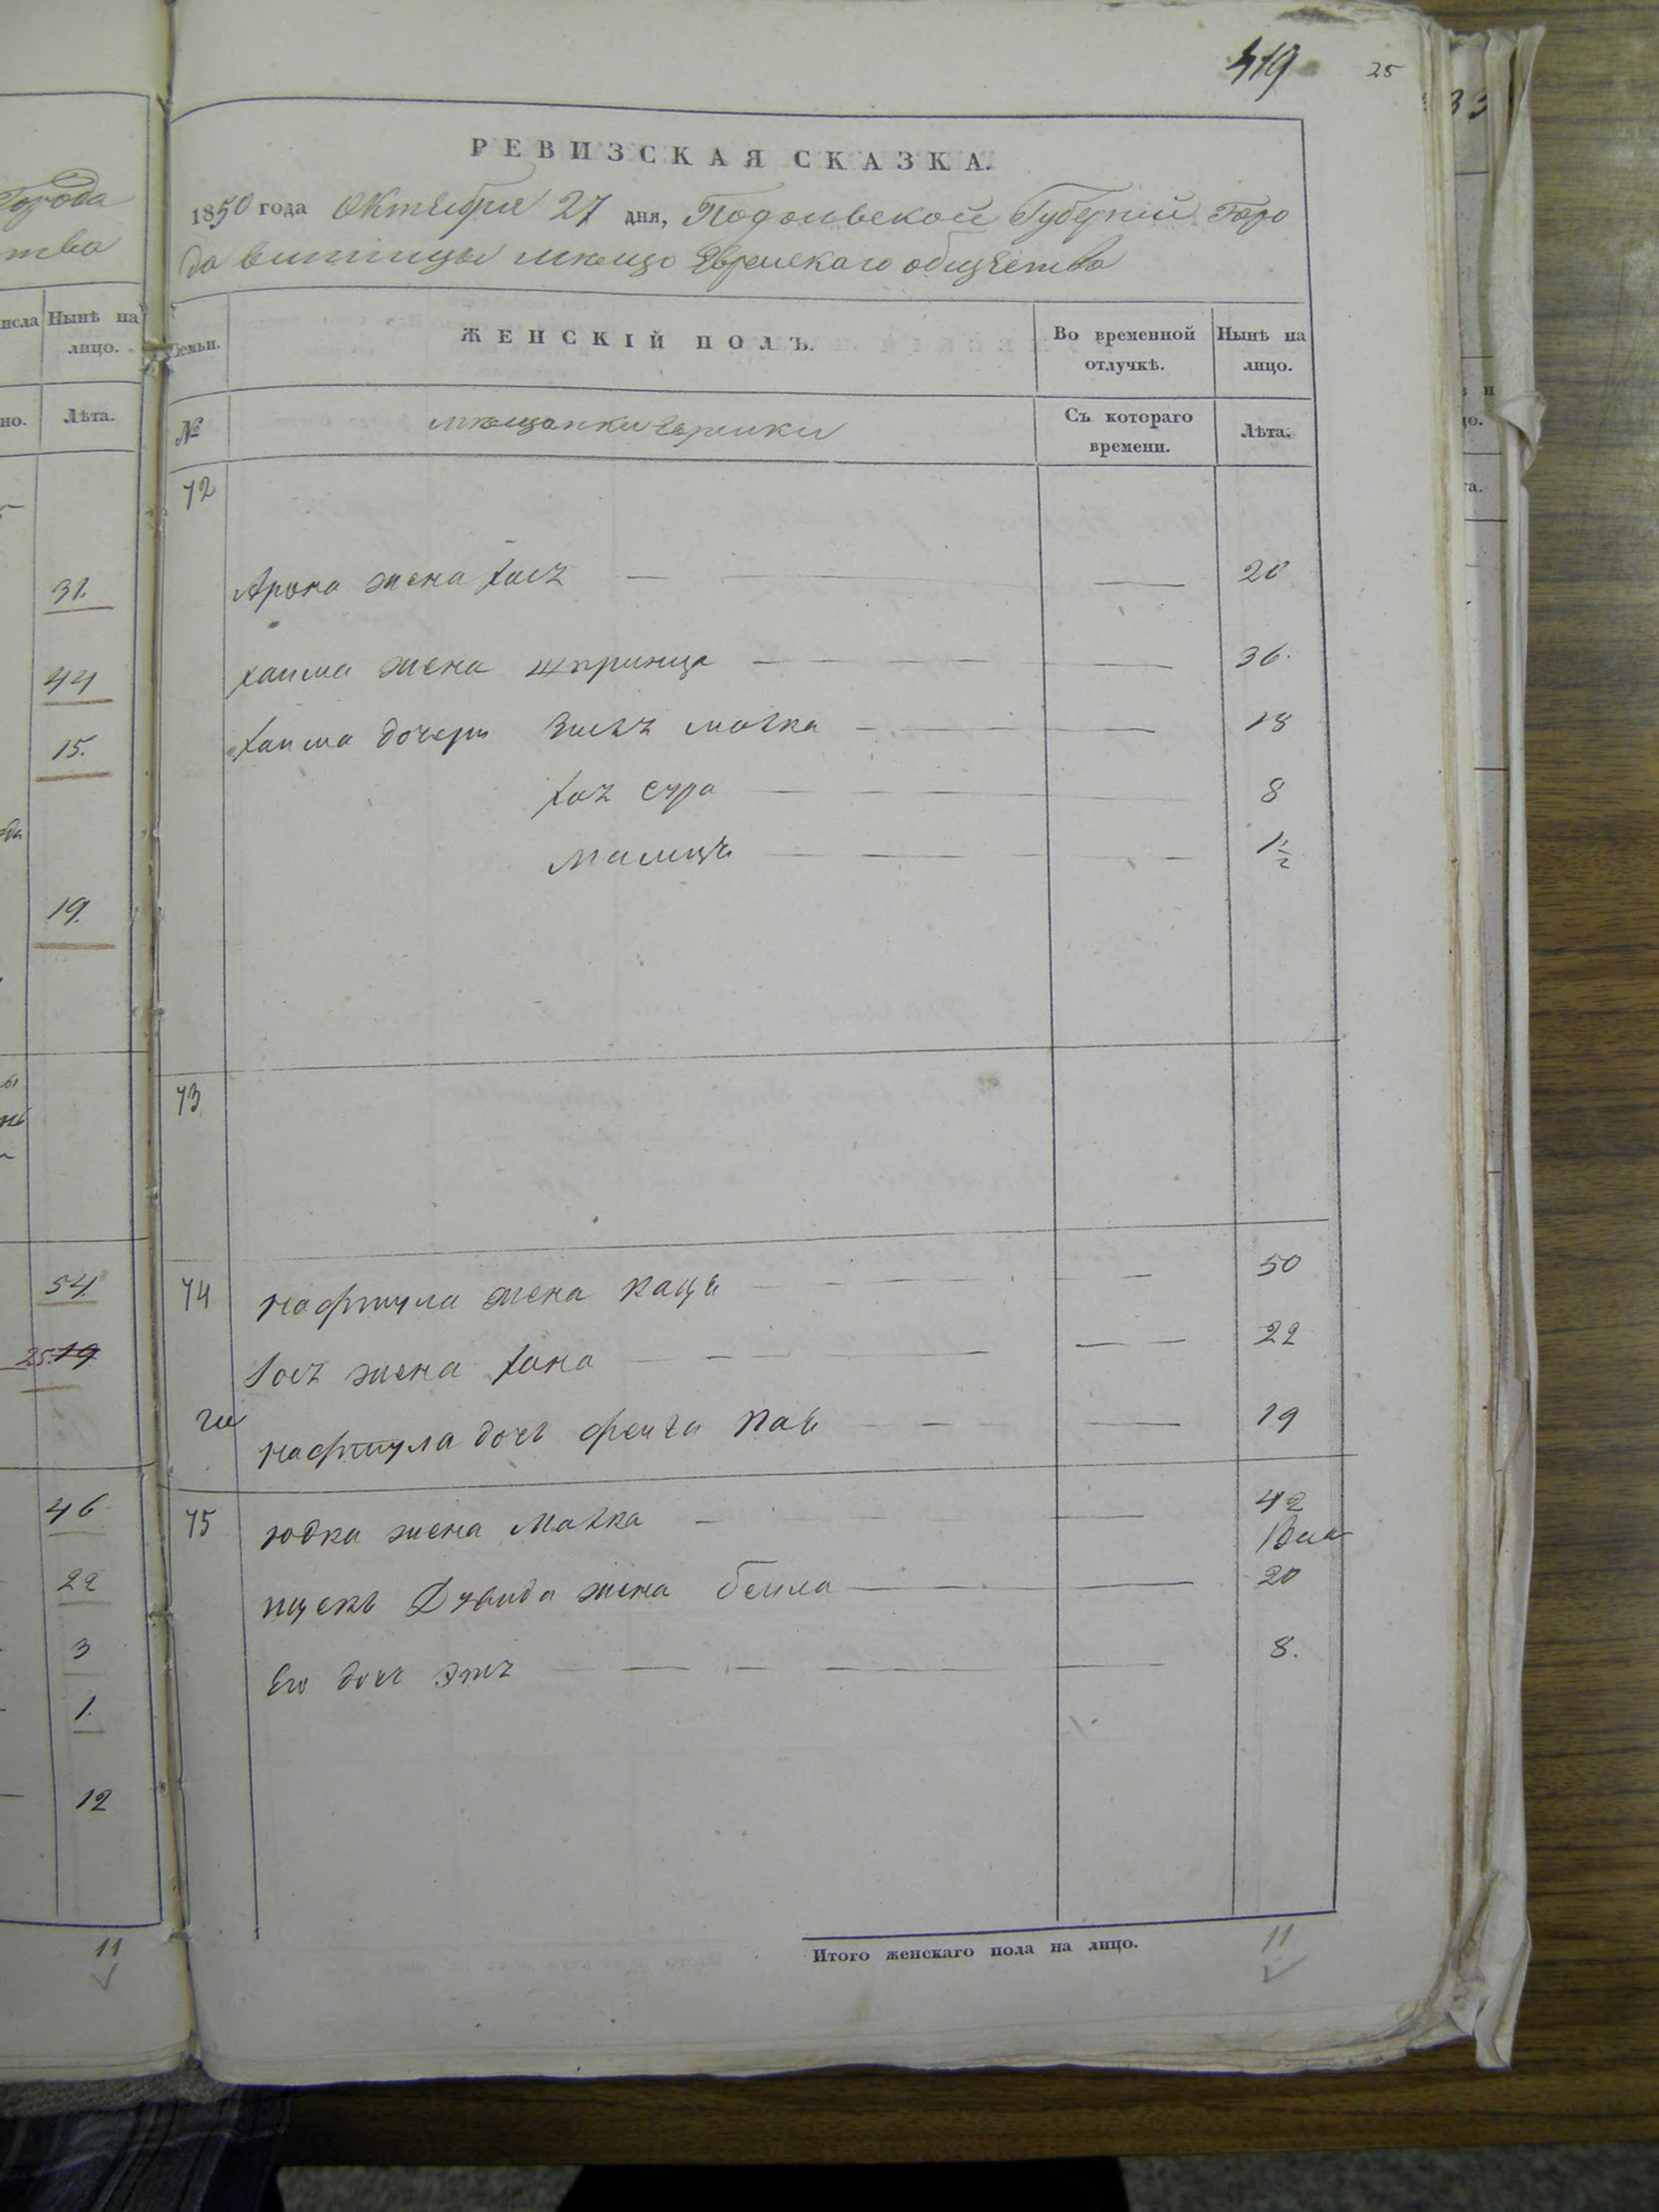 419 25
РЕВИЗСКАЯ СКАЗКА.
1850 года Октября 27 дня, Подольской Губернии Горо
да Винницы мѣщ: Еврейскаго общества
Города
тва
исла Нынѣ на лицо.
но. Лѣта.
Семьи. ЖЕНСКІЙ ПОЛЪ. Во временной отлучкѣ. Нынѣ на лицо.
№ мѣщанки Еврейки Съ котораго времени. Лѣта.
72
31.
Арона жена Хая 20
44
Хаима жена Шпринца 36.
15.
Хаима дочери малка 18
Хая Сура 8
1 1/2
19.
73
54
74 Нафтула жена 50
25. 19
жена Хана 22
Нафтула дочь Фейга 19
46
75 Юдка жена Малка 42
22
Ицекъ Дувида жена Бейла 20
3
Его дочь 8.
1.
12
Итого женскаго пола на лицо. 11
11